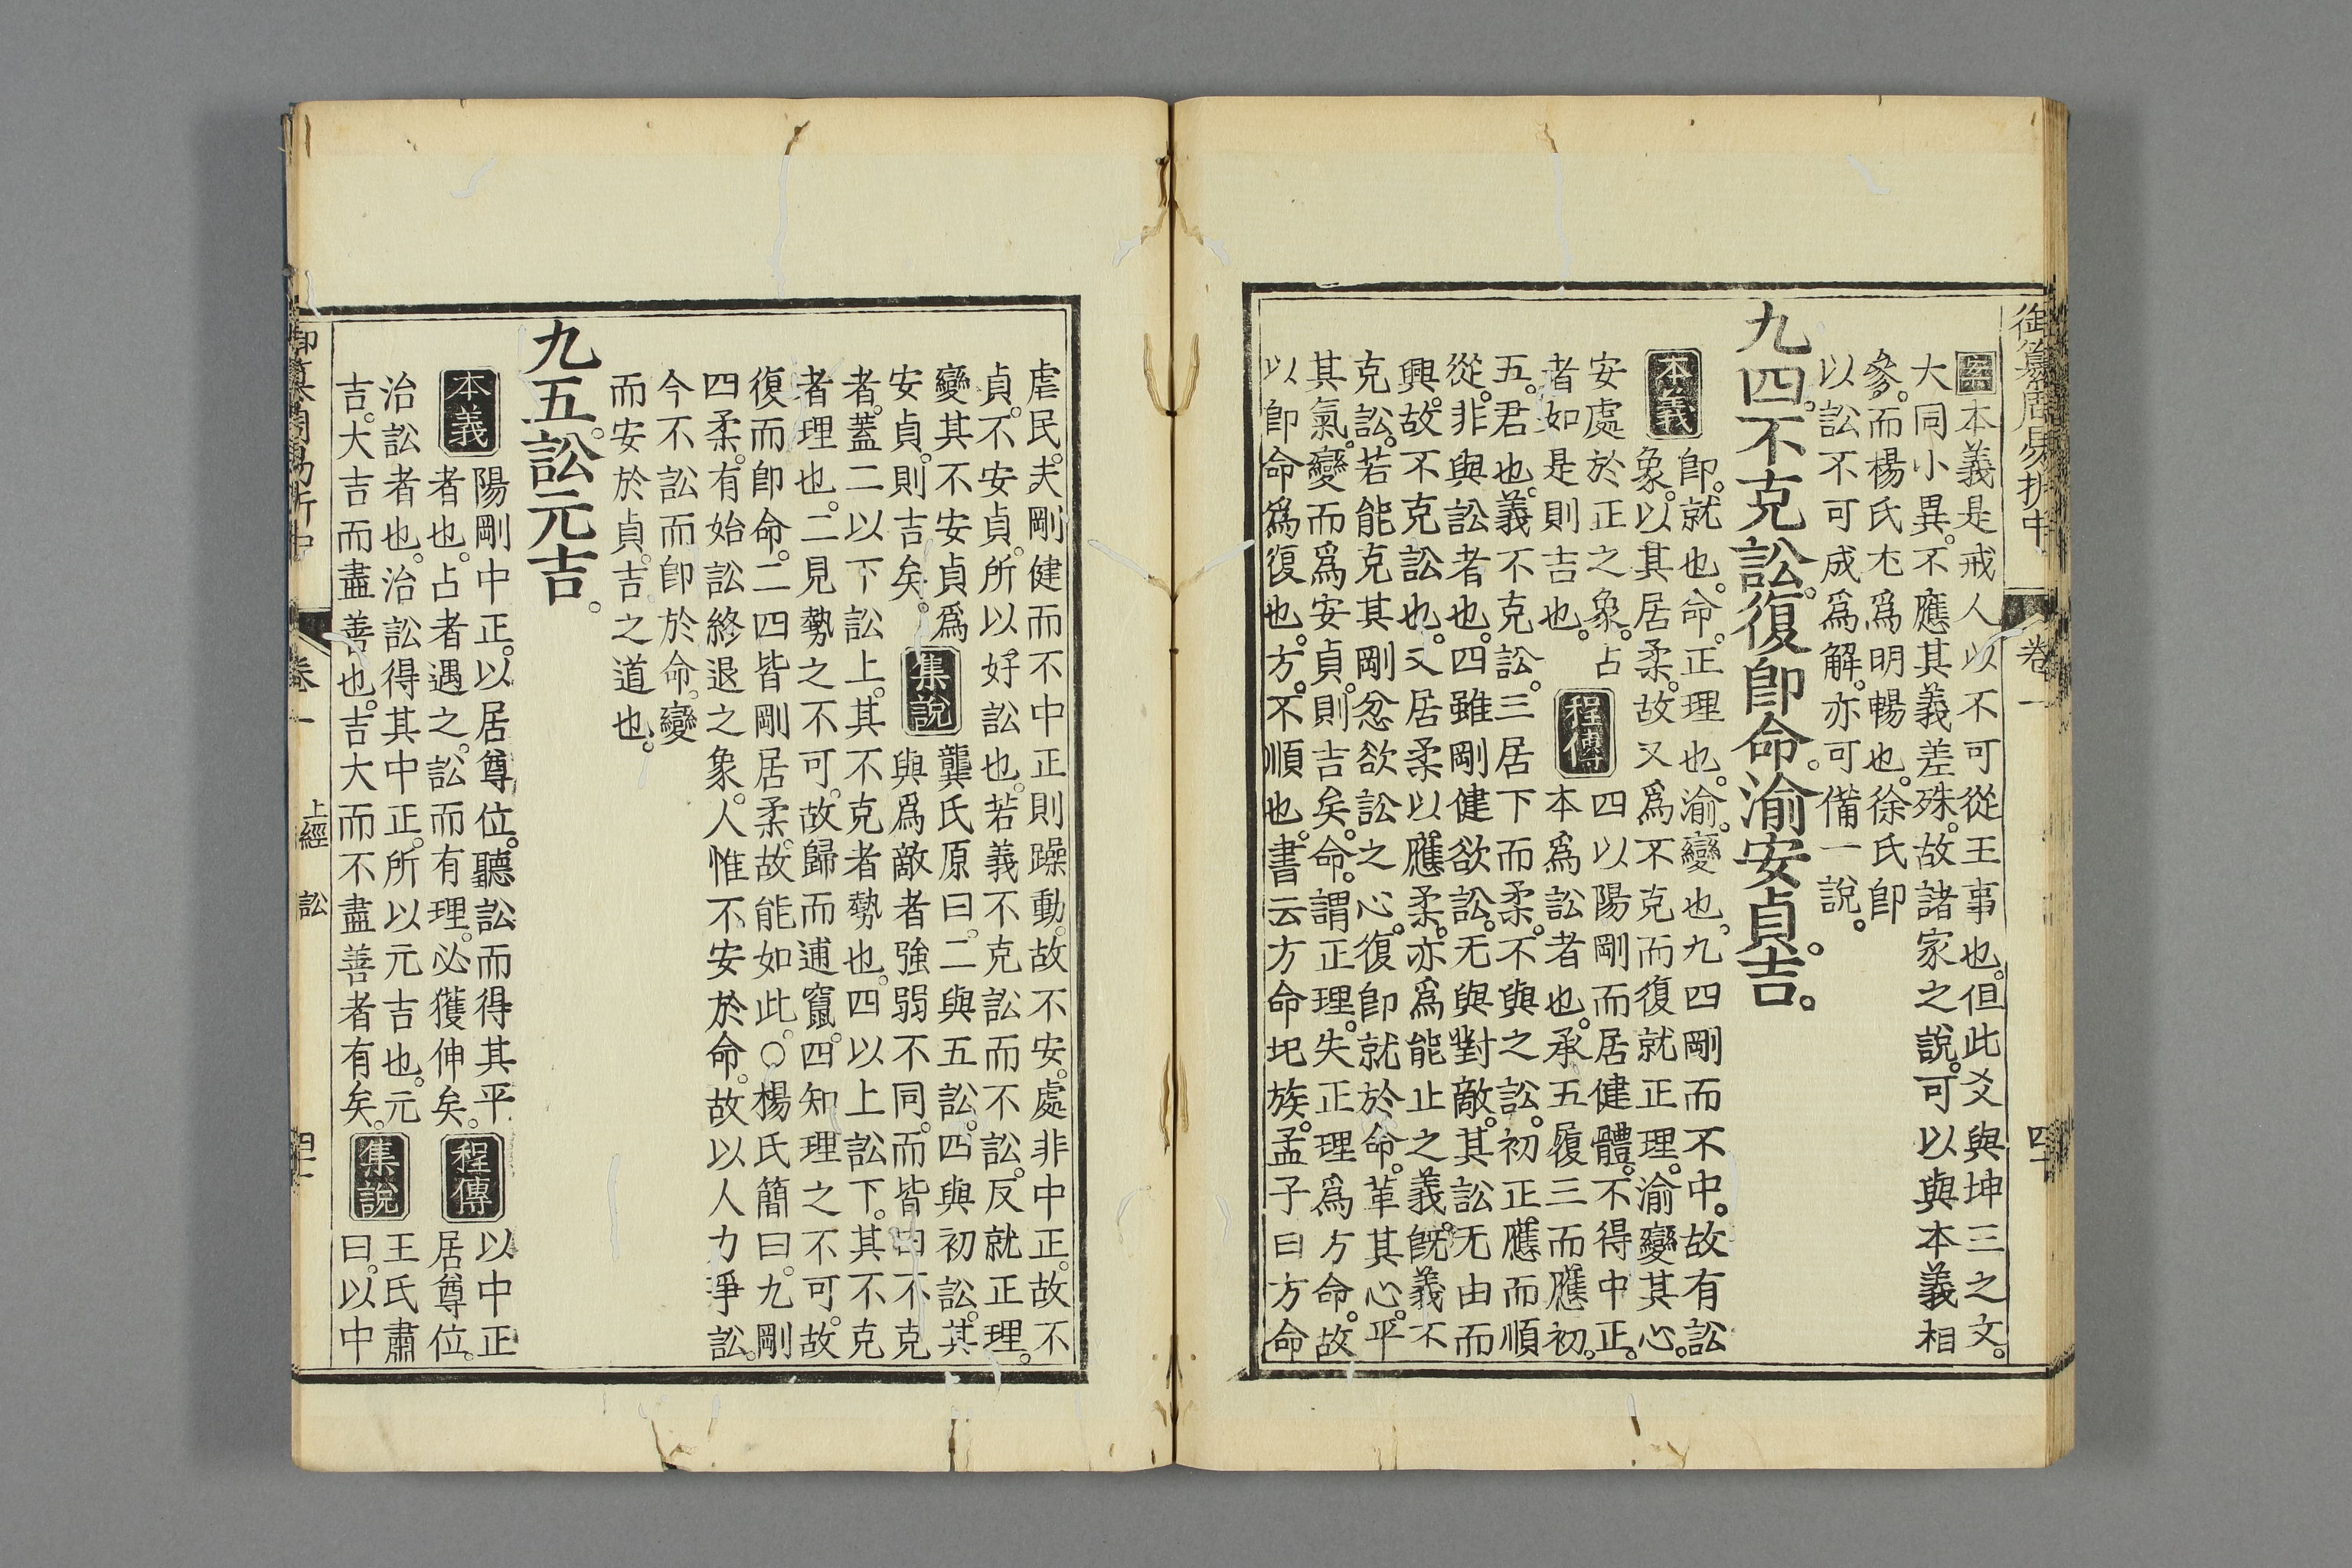 御纂周易折中 卷一 四十
本義是戒人以不可從王事也。但此爻與坤三之文。
大同小異。不應其義差殊。故諸家之說。可以與本義相
參。而楊氏尤爲明暢也。徐氏卽
以訟不可成爲解。亦可備一說。
九四。不克訟。復卽命。渝安貞。吉。
本義 卽。就也。命。正理也。渝。變也。九四剛而不中。故有訟
象。以其居柔。故又爲不克而復就正理。渝變其心。
安處於正之象。占
者如是則吉也。
程傳 四以陽剛而居健體。不得中正。
本爲訟者也。承五履三而應初。
五。君也。義不克訟。三居下而柔。不與之訟。初正應而順
從。非與訟者也。四雖剛健欲訟。无與對敵。其訟无由而
興。故不克訟也。又居柔以應柔。亦爲能止之義。旣義不
克訟。若能克其剛忿欲訟之心。復卽就於命。革其心。平
其氣。變而爲安貞。則吉矣。命。謂正理。失正理爲方命。故
以卽命爲復也。方。不順也。書云方命圮族。孟子曰方命
虐民。夫剛健而不中正則躁動。故不安。處非中正。故不
貞。不安貞。所以好訟也。若義不克訟而不訟。反就正理。
變其不安貞爲
安貞。則吉矣。
集說 龔氏原曰。二與五訟。四與初訟。其
與爲敵者強弱不同。而皆曰不克
者。蓋二以下訟上。其不克者勢也。四以上訟下。其不克
者理也。二見勢之不可。故歸而逋竄。四知理之不可。故
復而卽命。二四皆剛居柔。故能如此。○楊氏簡曰。九剛
四柔。有始訟終退之象。人惟不安於命。故以人力爭訟。
今不訟而卽於命。變
而安於貞。吉之道也。
九五。訟元吉。
本義 陽剛中正。以居尊位。聽訟而得其平
者也。占者遇之。訟而有理。必獲伸矣。
程傳 以中正
居尊位。
治訟者也。治訟得其中正。所以元吉也。元
吉。大吉而盡善也。吉大而不盡善者有矣。
集說 王氏肅
曰。以中
御纂周易折中 卷一 上經 訟